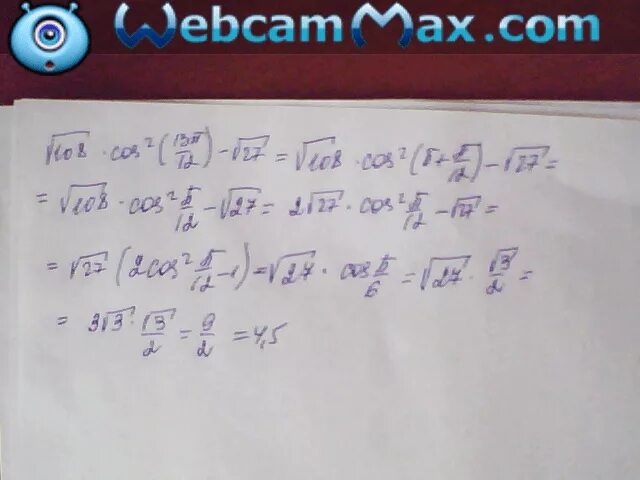 WebcamMax.com
√108 · cos²(13π/12) - √27 = √108 · cos²(π + π/12) - √27 =
= √108 · cos² π/12 - √27 = 2√27 · cos² π/12 - √27 =
= √27 (2cos² π/12 - 1) = √27 · cos π/6 = √27 · √3/2 =
= 3√3 · √3/2 = 9/2 = 4,5